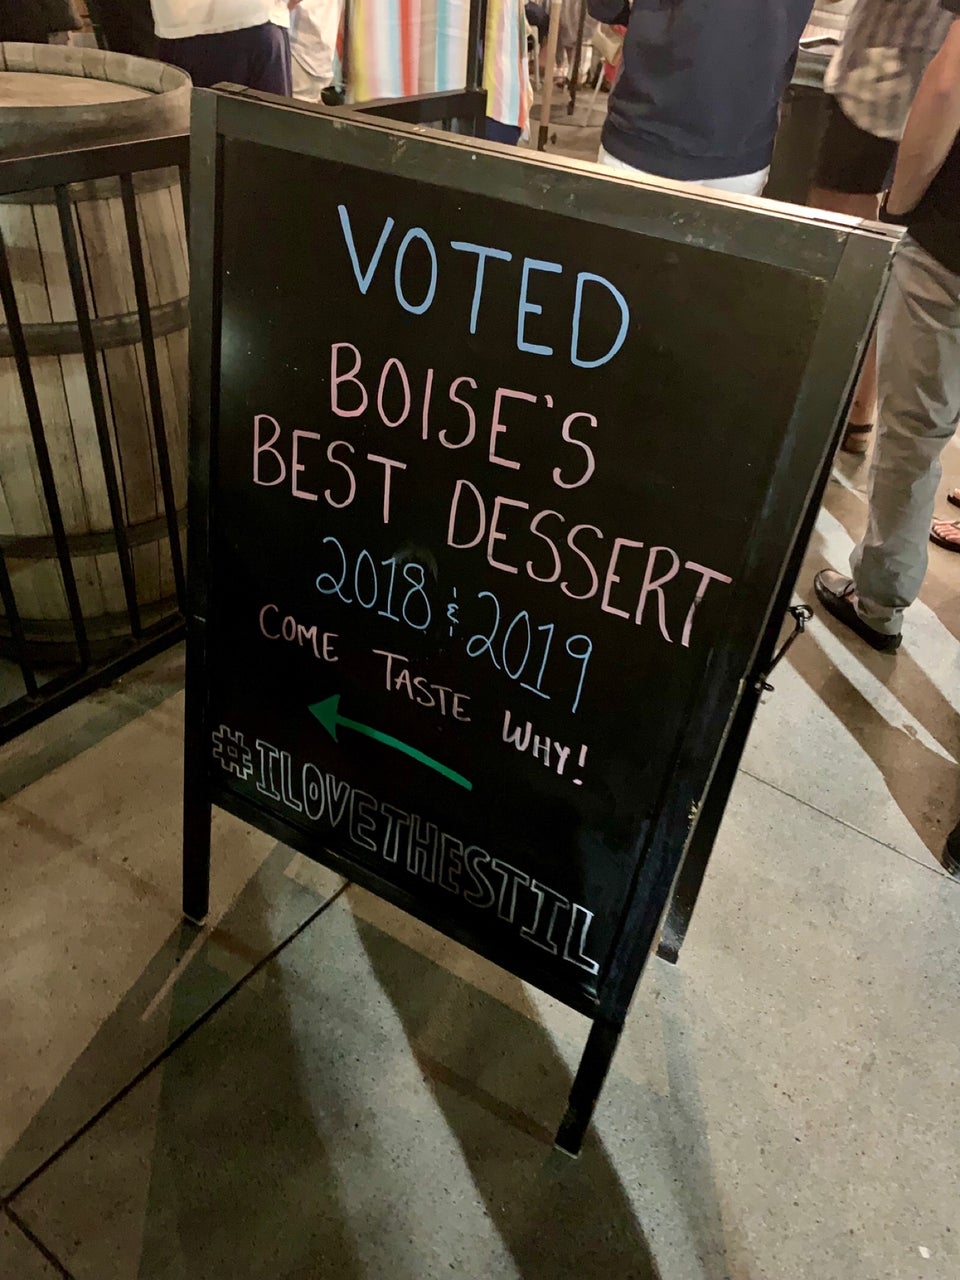 VOTED
BOISE'S
BEST DESSERT
2018 & 2019
COME TASTE WHY!
#ILOVETHESTIL